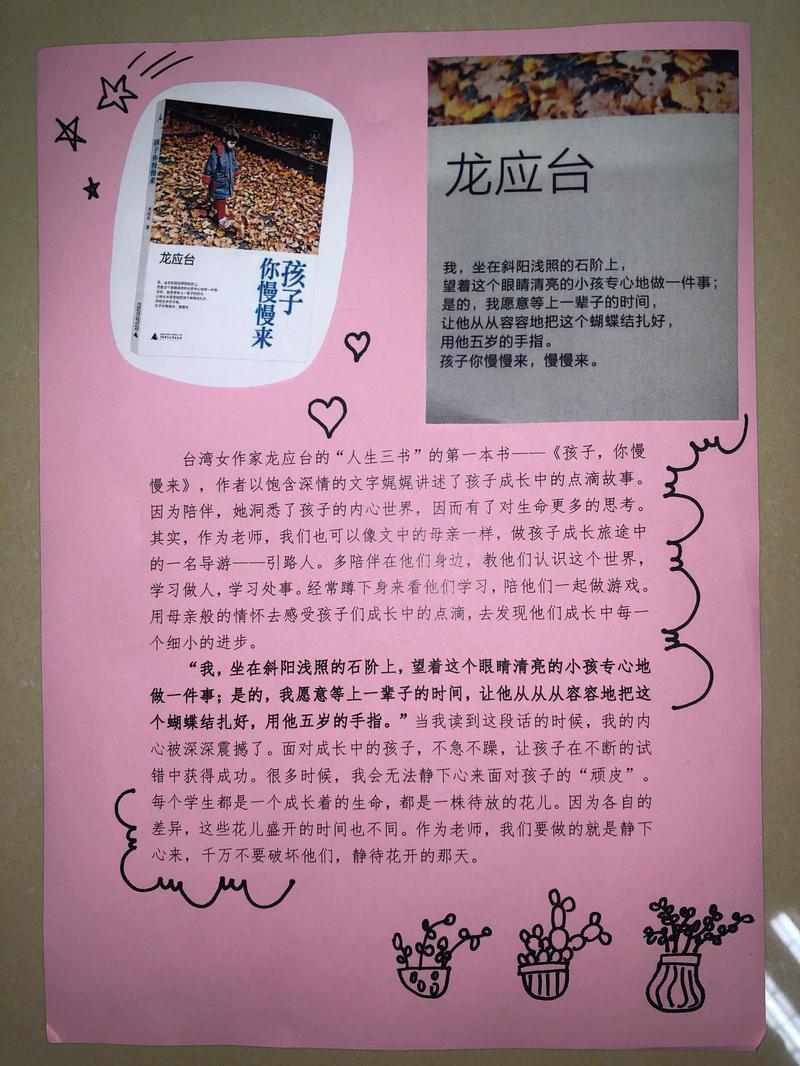 孩子你慢慢来
龙应台
孩子
你慢慢来
龙应台
我，坐在斜阳浅照的石阶上，
望着这个眼睛清亮的小孩专心地做一件事；
是的，我愿意等上一辈子的时间，
让他从从容容地把这个蝴蝶结扎好，
用他五岁的手指。
孩子你慢慢来，慢慢来。
台湾女作家龙应台的“人生三书”的第一本书——《孩子，你慢
慢来》，作者以饱含深情的文字娓娓讲述了孩子成长中的点滴故事。
因为陪伴，她洞悉了孩子的内心世界，因而有了对生命更多的思考。
其实，作为老师，我们也可以像文中的母亲一样，做孩子成长旅途中
的一名导游——引路人。多陪伴在他们身边，教他们认识这个世界，
学习做人，学习处事。经常蹲下身来看他们学习，陪他们一起做游戏。
用母亲般的情怀去感受孩子们成长中的点滴，去发现他们成长中每一
个细小的进步。
“我，坐在斜阳浅照的石阶上，望着这个眼睛清亮的小孩专心地
做一件事；是的，我愿意等上一辈子的时间，让他从从从容容地把这
个蝴蝶结扎好，用他五岁的手指。”当我读到这段话的时候，我的内
心被深深震撼了。面对成长中的孩子，不急不躁，让孩子在不断的试
错中获得成功。很多时候，我会无法静下心来面对孩子的“顽皮”。
每个学生都是一个成长着的生命，都是一株待放的花儿。因为各自的
差异，这些花儿盛开的时间也不同。作为老师，我们要做的就是静下
心来，千万不要破坏他们，静待花开的那天。